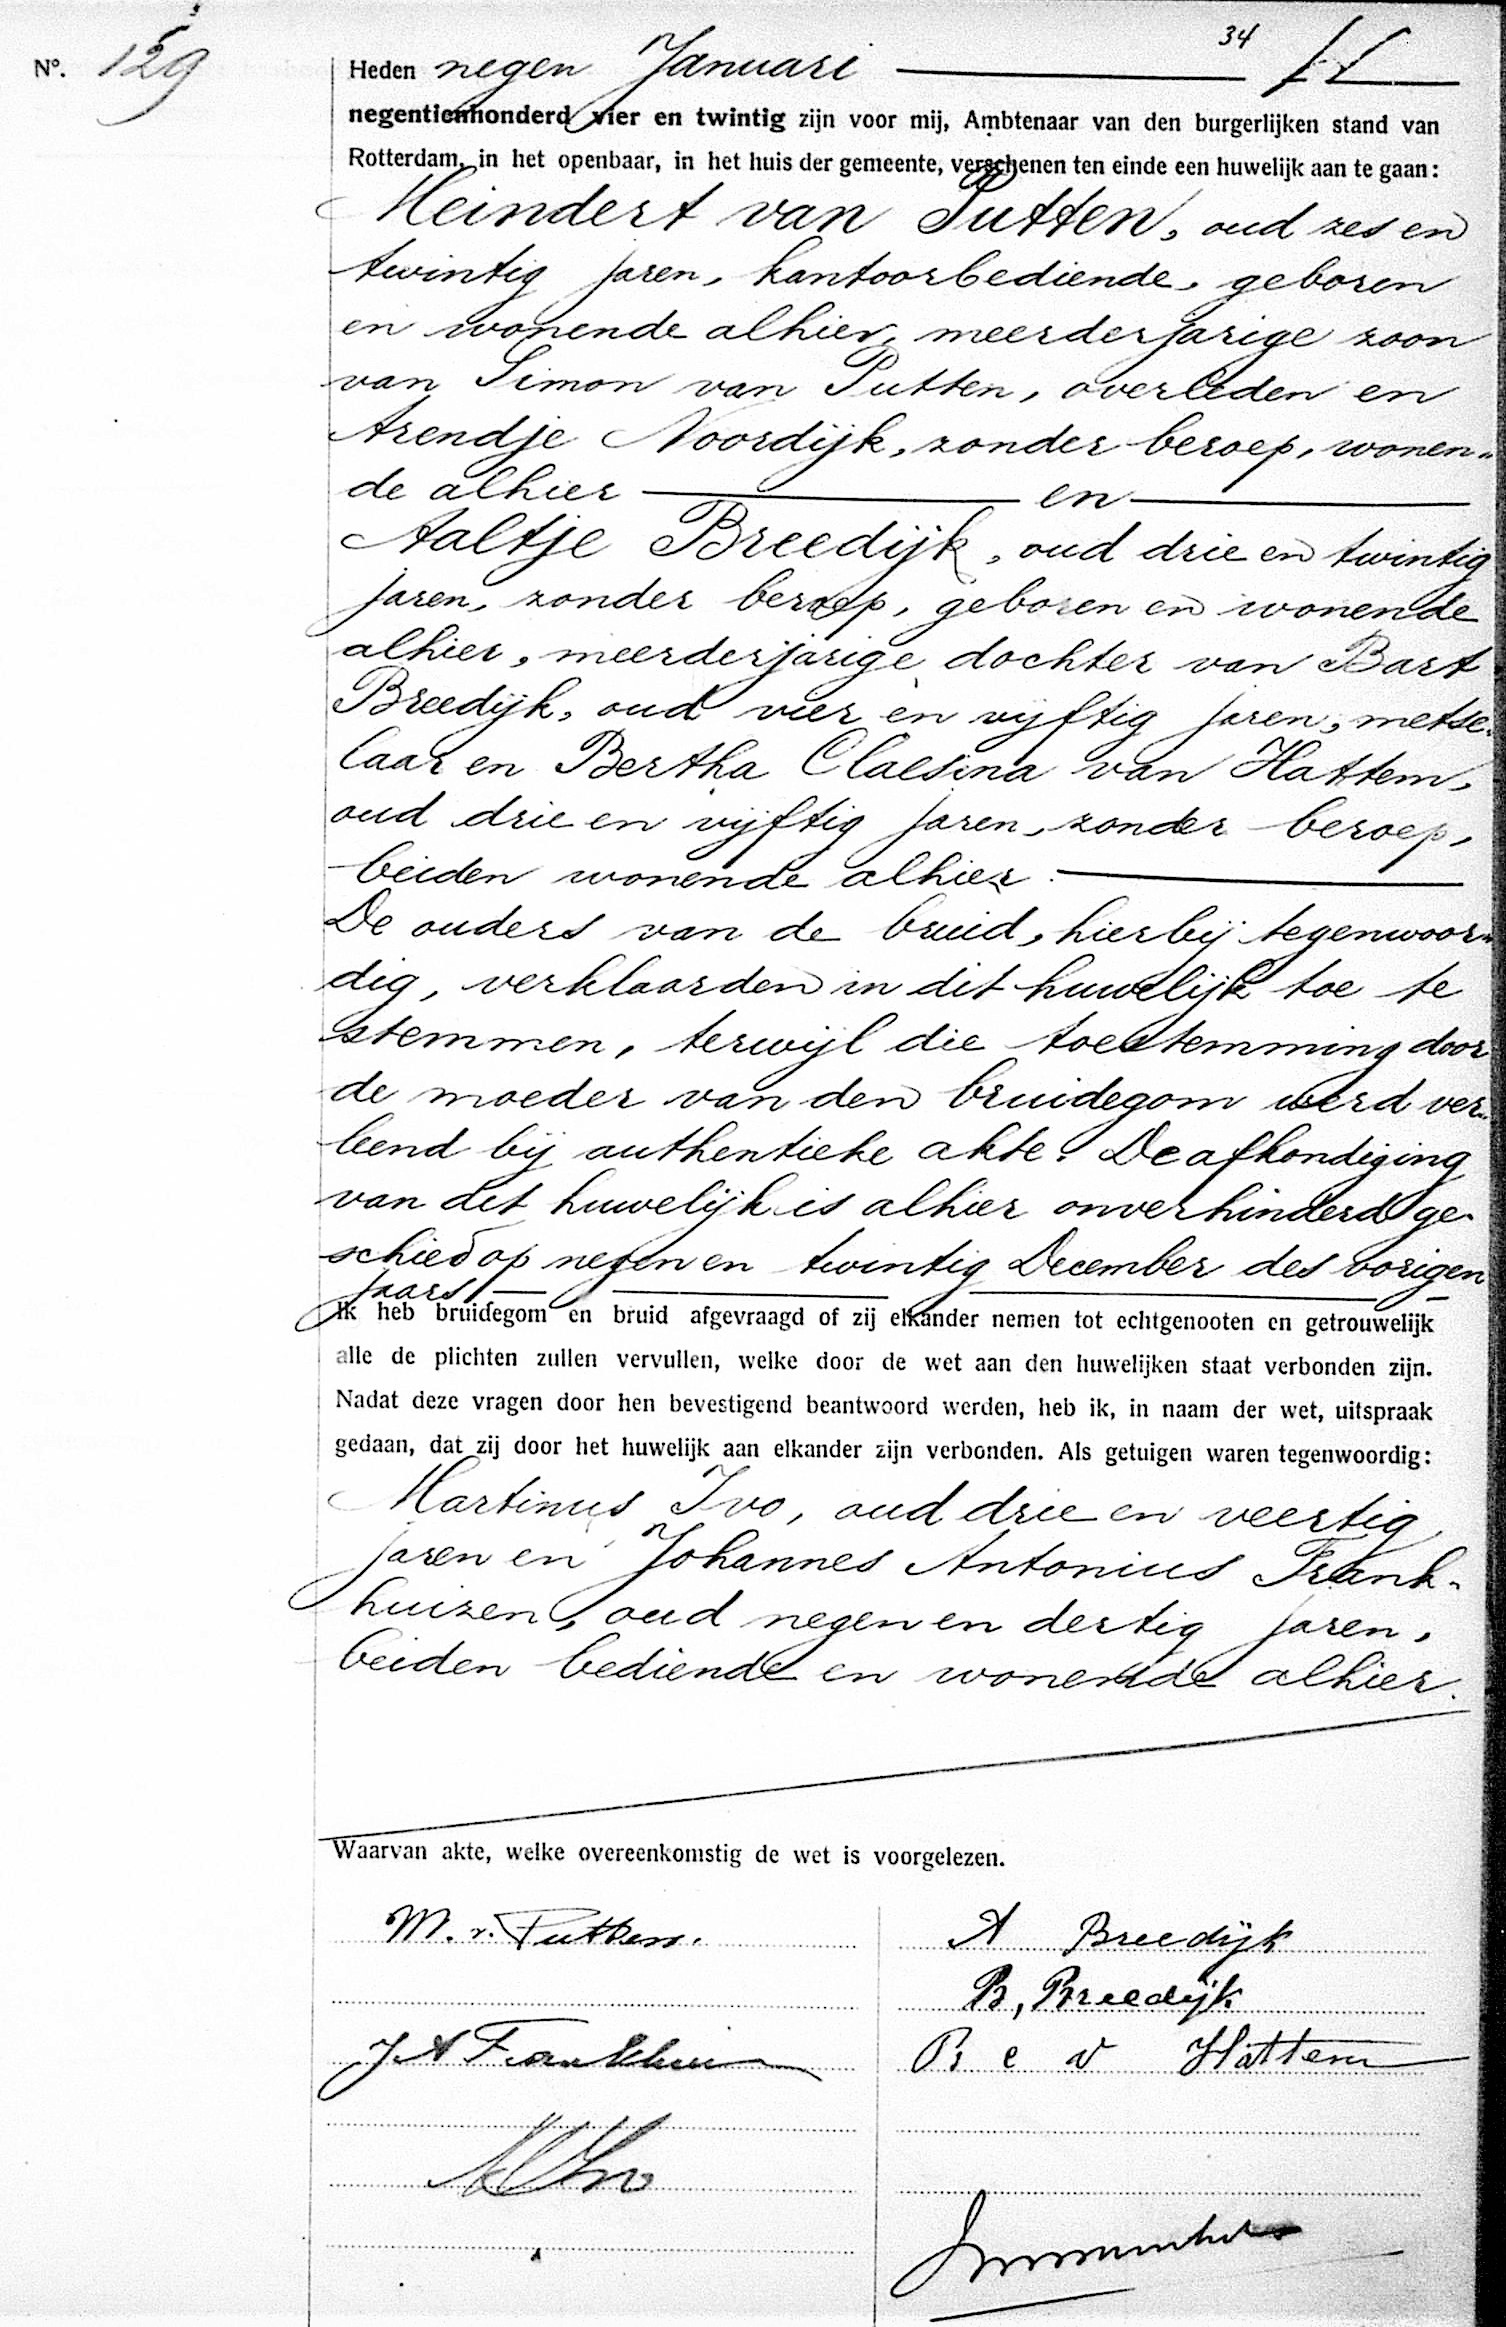 34
Nº. 129 Heden negen Januari
negentienhonderd vier en twintig zijn voor mij, Ambtenaar van den burgerlijken stand van
Rotterdam, in het openbaar, in het huis der gemeente, verschenen ten einde een huwelijk aan te gaan:
Meindert van Putten, oud zes en
twintig jaren, kantoorbediende, geboren
en wonende alhier, meerderjarige zoon
van Simon van Putten, overleden en
Arendje Noordijk, zonder beroep, wonen„
de alhier en
Aaltje Breedijk, oud drie en twintig
jaren, zonder beroep, geboren en wonende
alhier, meerderjarige dochter van Bart
Breedijk, oud vier en vijftig jaren, metse„
laar en Bertha Claesina van Hattem,
oud drie en vijftig jaren, zonder beroep,
beiden wonende alhier.
De ouders van de bruid, hierbij tegenwoor„
dig, verklaarden in dit huwelijk toe te
stemmen, terwijl die toestemming door
de moeder van den bruidegom werd ver„
leend bij authentieke akte. De afkondiging
van dit huwelijk is alhier onverhinderd ge„
schied op negen en twintig December des vorigen
jaars
Ik heb bruidegom en bruid afgevraagd of zij elkander nemen tot echtgenooten en getrouwelijk
alle de plichten zullen vervullen, welke door de wet aan den huwelijken staat verbonden zijn.
Nadat deze vragen door hen bevestigend beantwoord werden, heb ik, in naam der wet, uitspraak
gedaan, dat zij door het huwelijk aan elkander zijn verbonden. Als getuigen waren tegenwoordig:
Martinus Ivo, oud drie en veertig
jaren en Johannes Antonius Frank„
huizen, oud negen en dertig jaren,
beiden bediende en wonende alhier.
Waarvan akte, welke overeenkomstig de wet is voorgelezen.
M. v. Putten.
A Breedijk
B, Breedijk
J A Frankhui
B C v Hattem
M Ivo